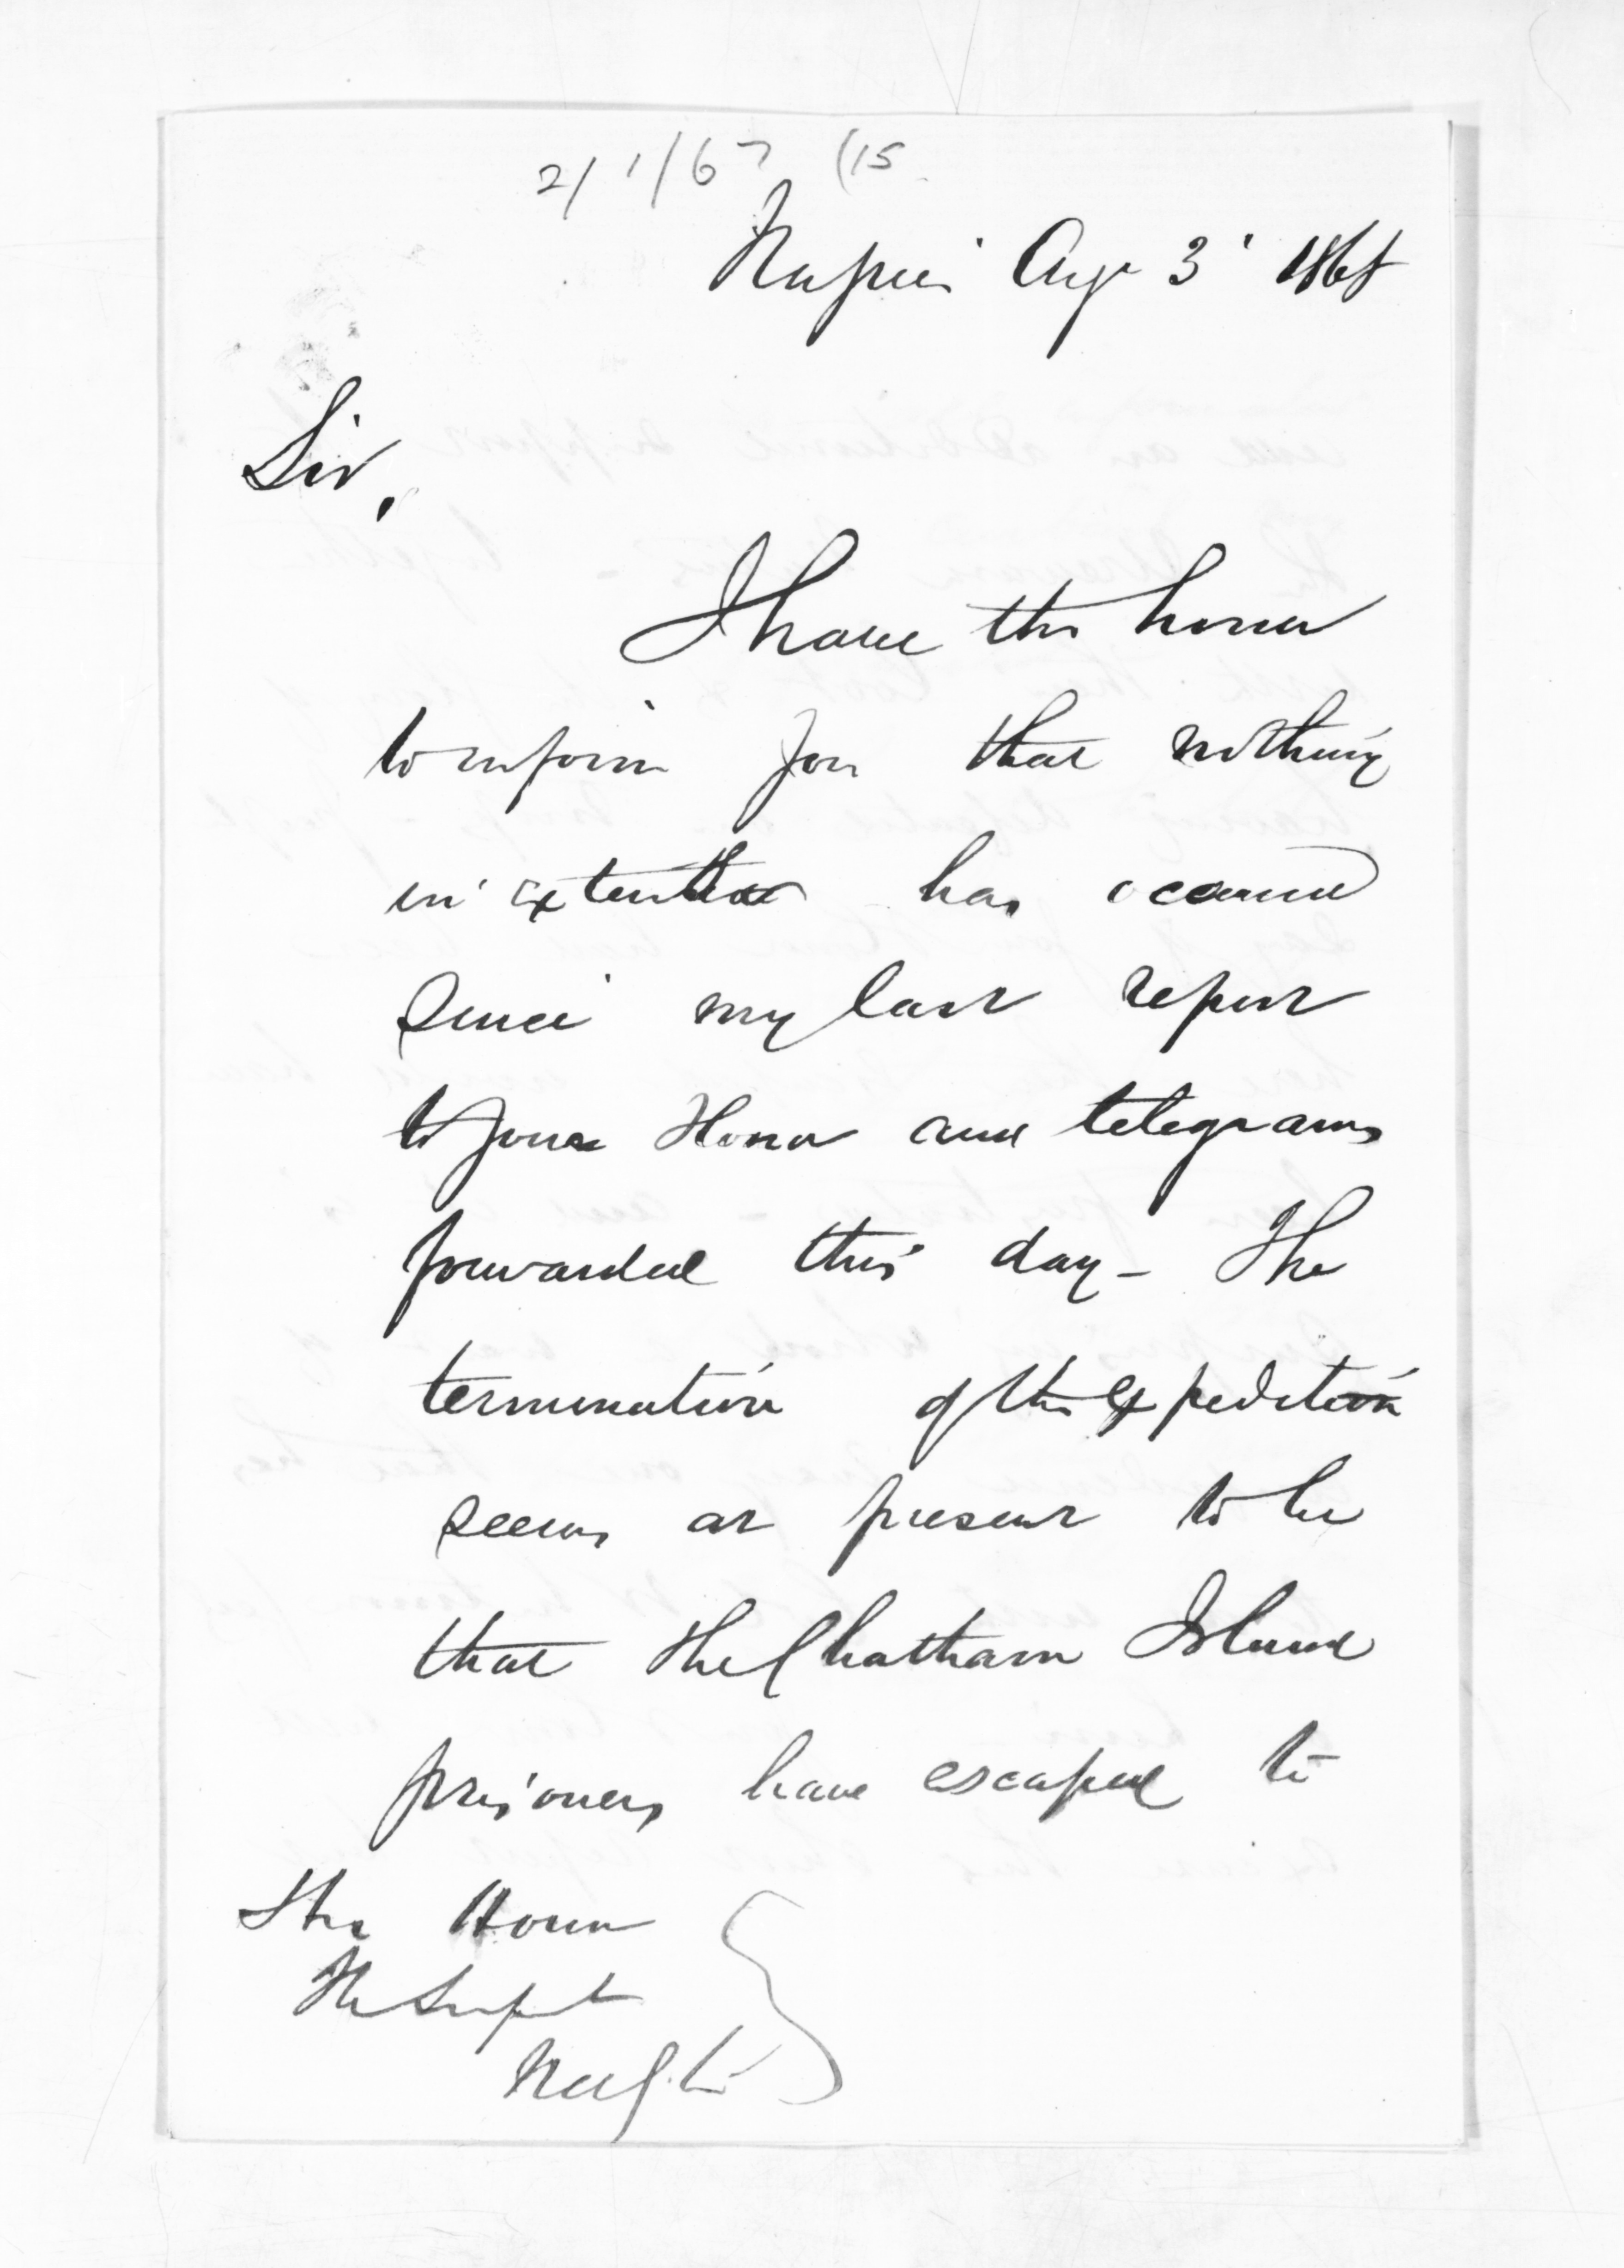 2/1/67 (15
Napier Aug 3 1868
Sir,
I have the honor
to inform you that nothing
in has occurred
since my last report
to your Honor and telegrams
forwarded this day - The
termination of the expedition
seems at present to be
that the Chatham Island
prisoners have escaped to
His Honor
The Supt